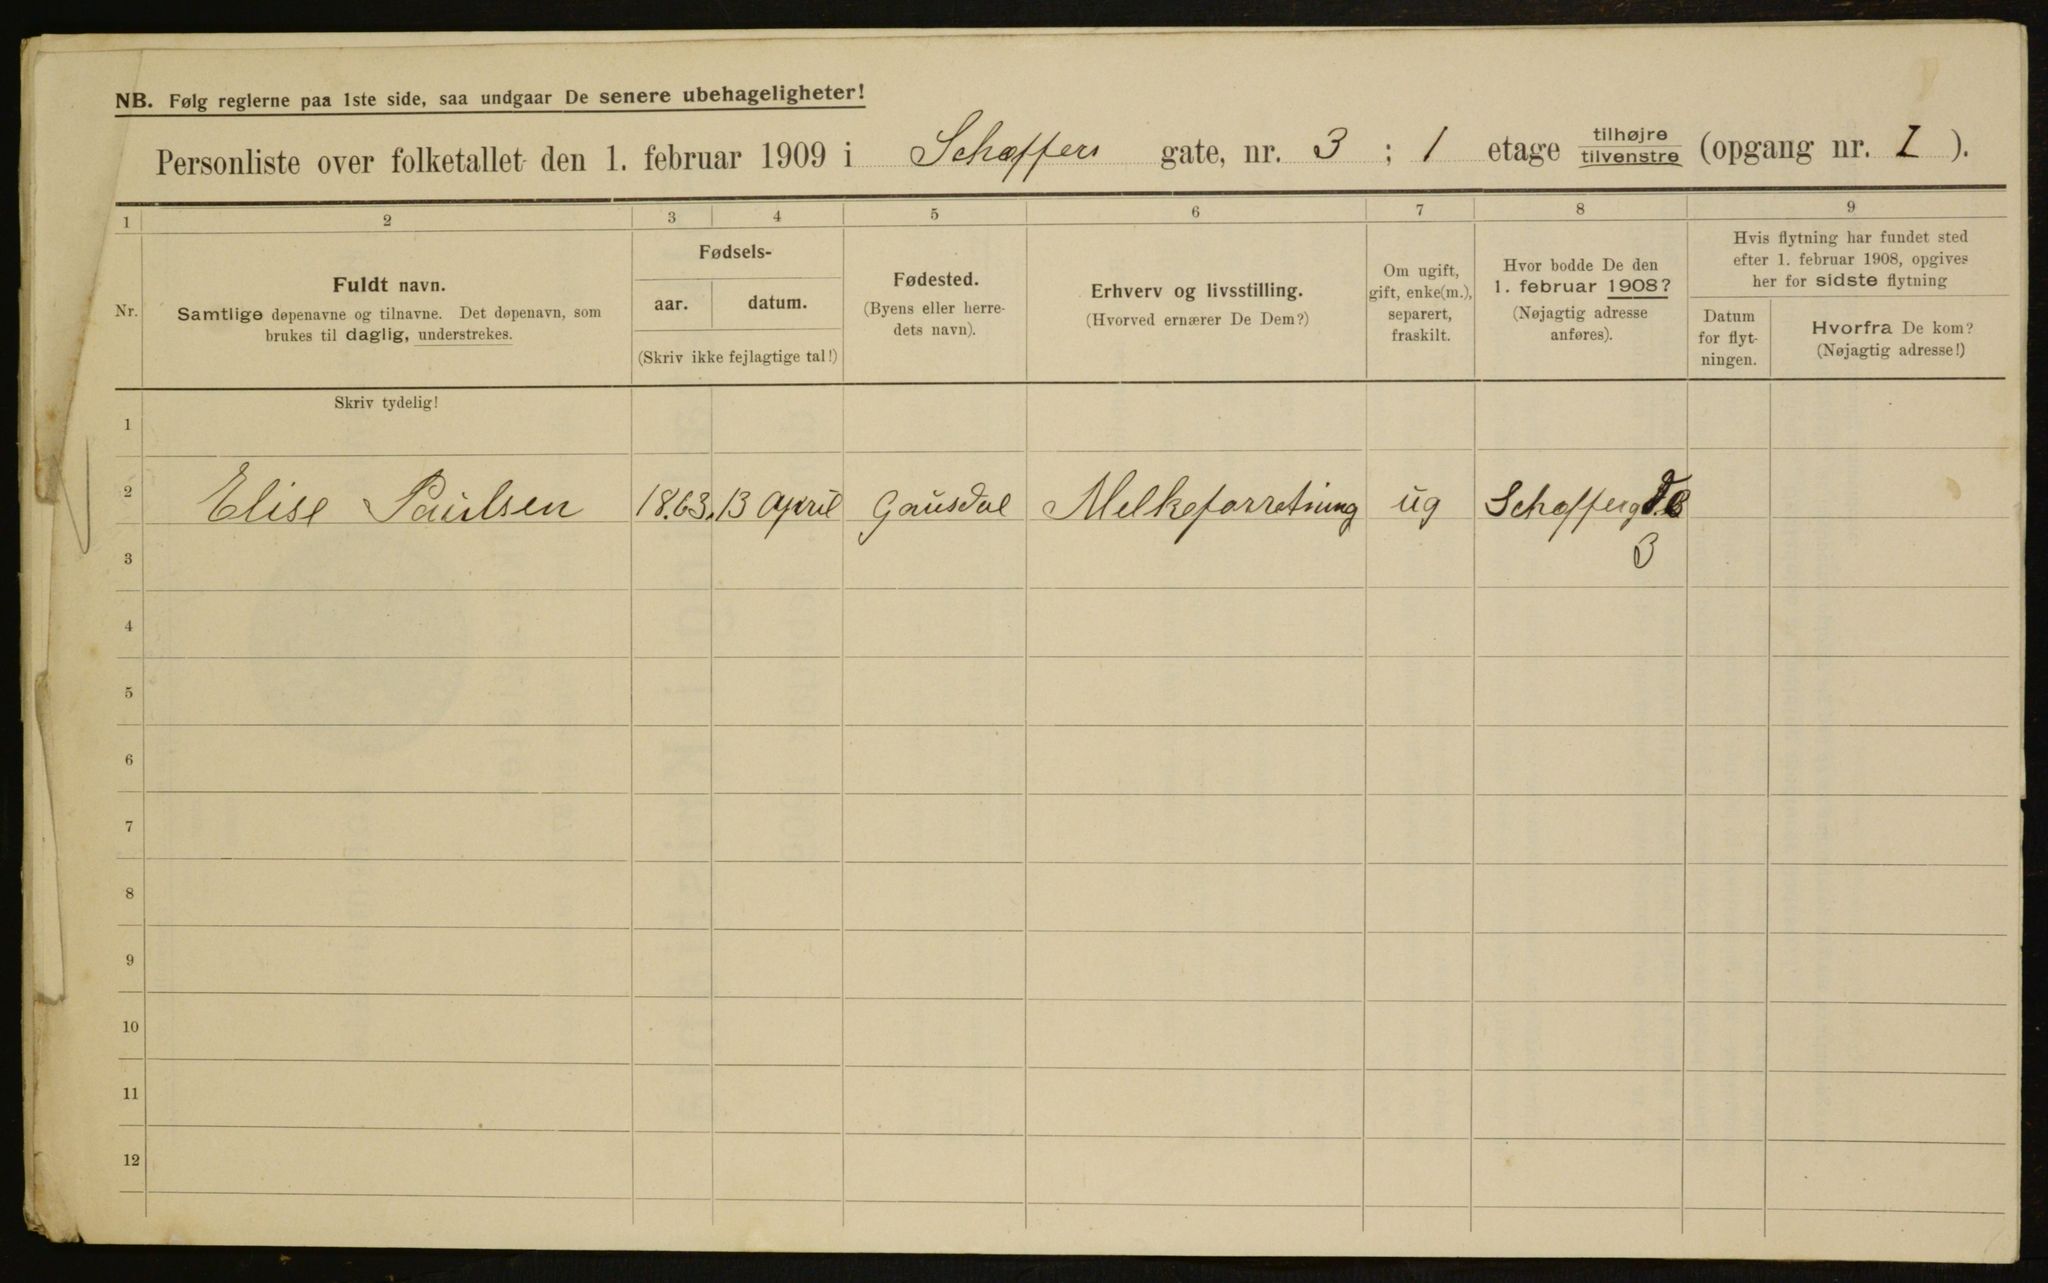 NB. Følg reglerne paa 1ste side, saa undgaar De senere ubehageligheter!
Personliste over folketallet den 1. februar 1909 i Schæffers gate, nr. 3 ; 1 etage tilhøjre tilvenstre (opgang nr. I ).
1 2 3 4 5 6 7 8 9
Nr.
Fuldt navn.
Samtlige døpenavne og tilnavne. Det døpenavn, som
brukes til daglig, understrekes.
Fødsels-
aar. datum.
(Skriv ikke fejlagtige tal!)
Fødested.
(Byens eller herre-
dets navn).
Erhverv og livsstilling.
(Hvorved ernærer De Dem?)
Om ugift,
gift, enke(m.),
separert,
fraskilt.
Hvor bodde De den
1. februar 1908?
(Nøjagtig adresse
anføres).
Hvis flytning har fundet sted
efter 1. februar 1908, opgives
her for sidste flytning
Datum
for flyt-
ningen.
Hvorfra De kom?
(Nøjagtig adresse!)
Skriv tydelig!
1
2 Elise Paulsen 1863. 13 April Gausdal Melkeforretning ug Schæfferg
3
3
4
5
6
7
8
9
10
11
12